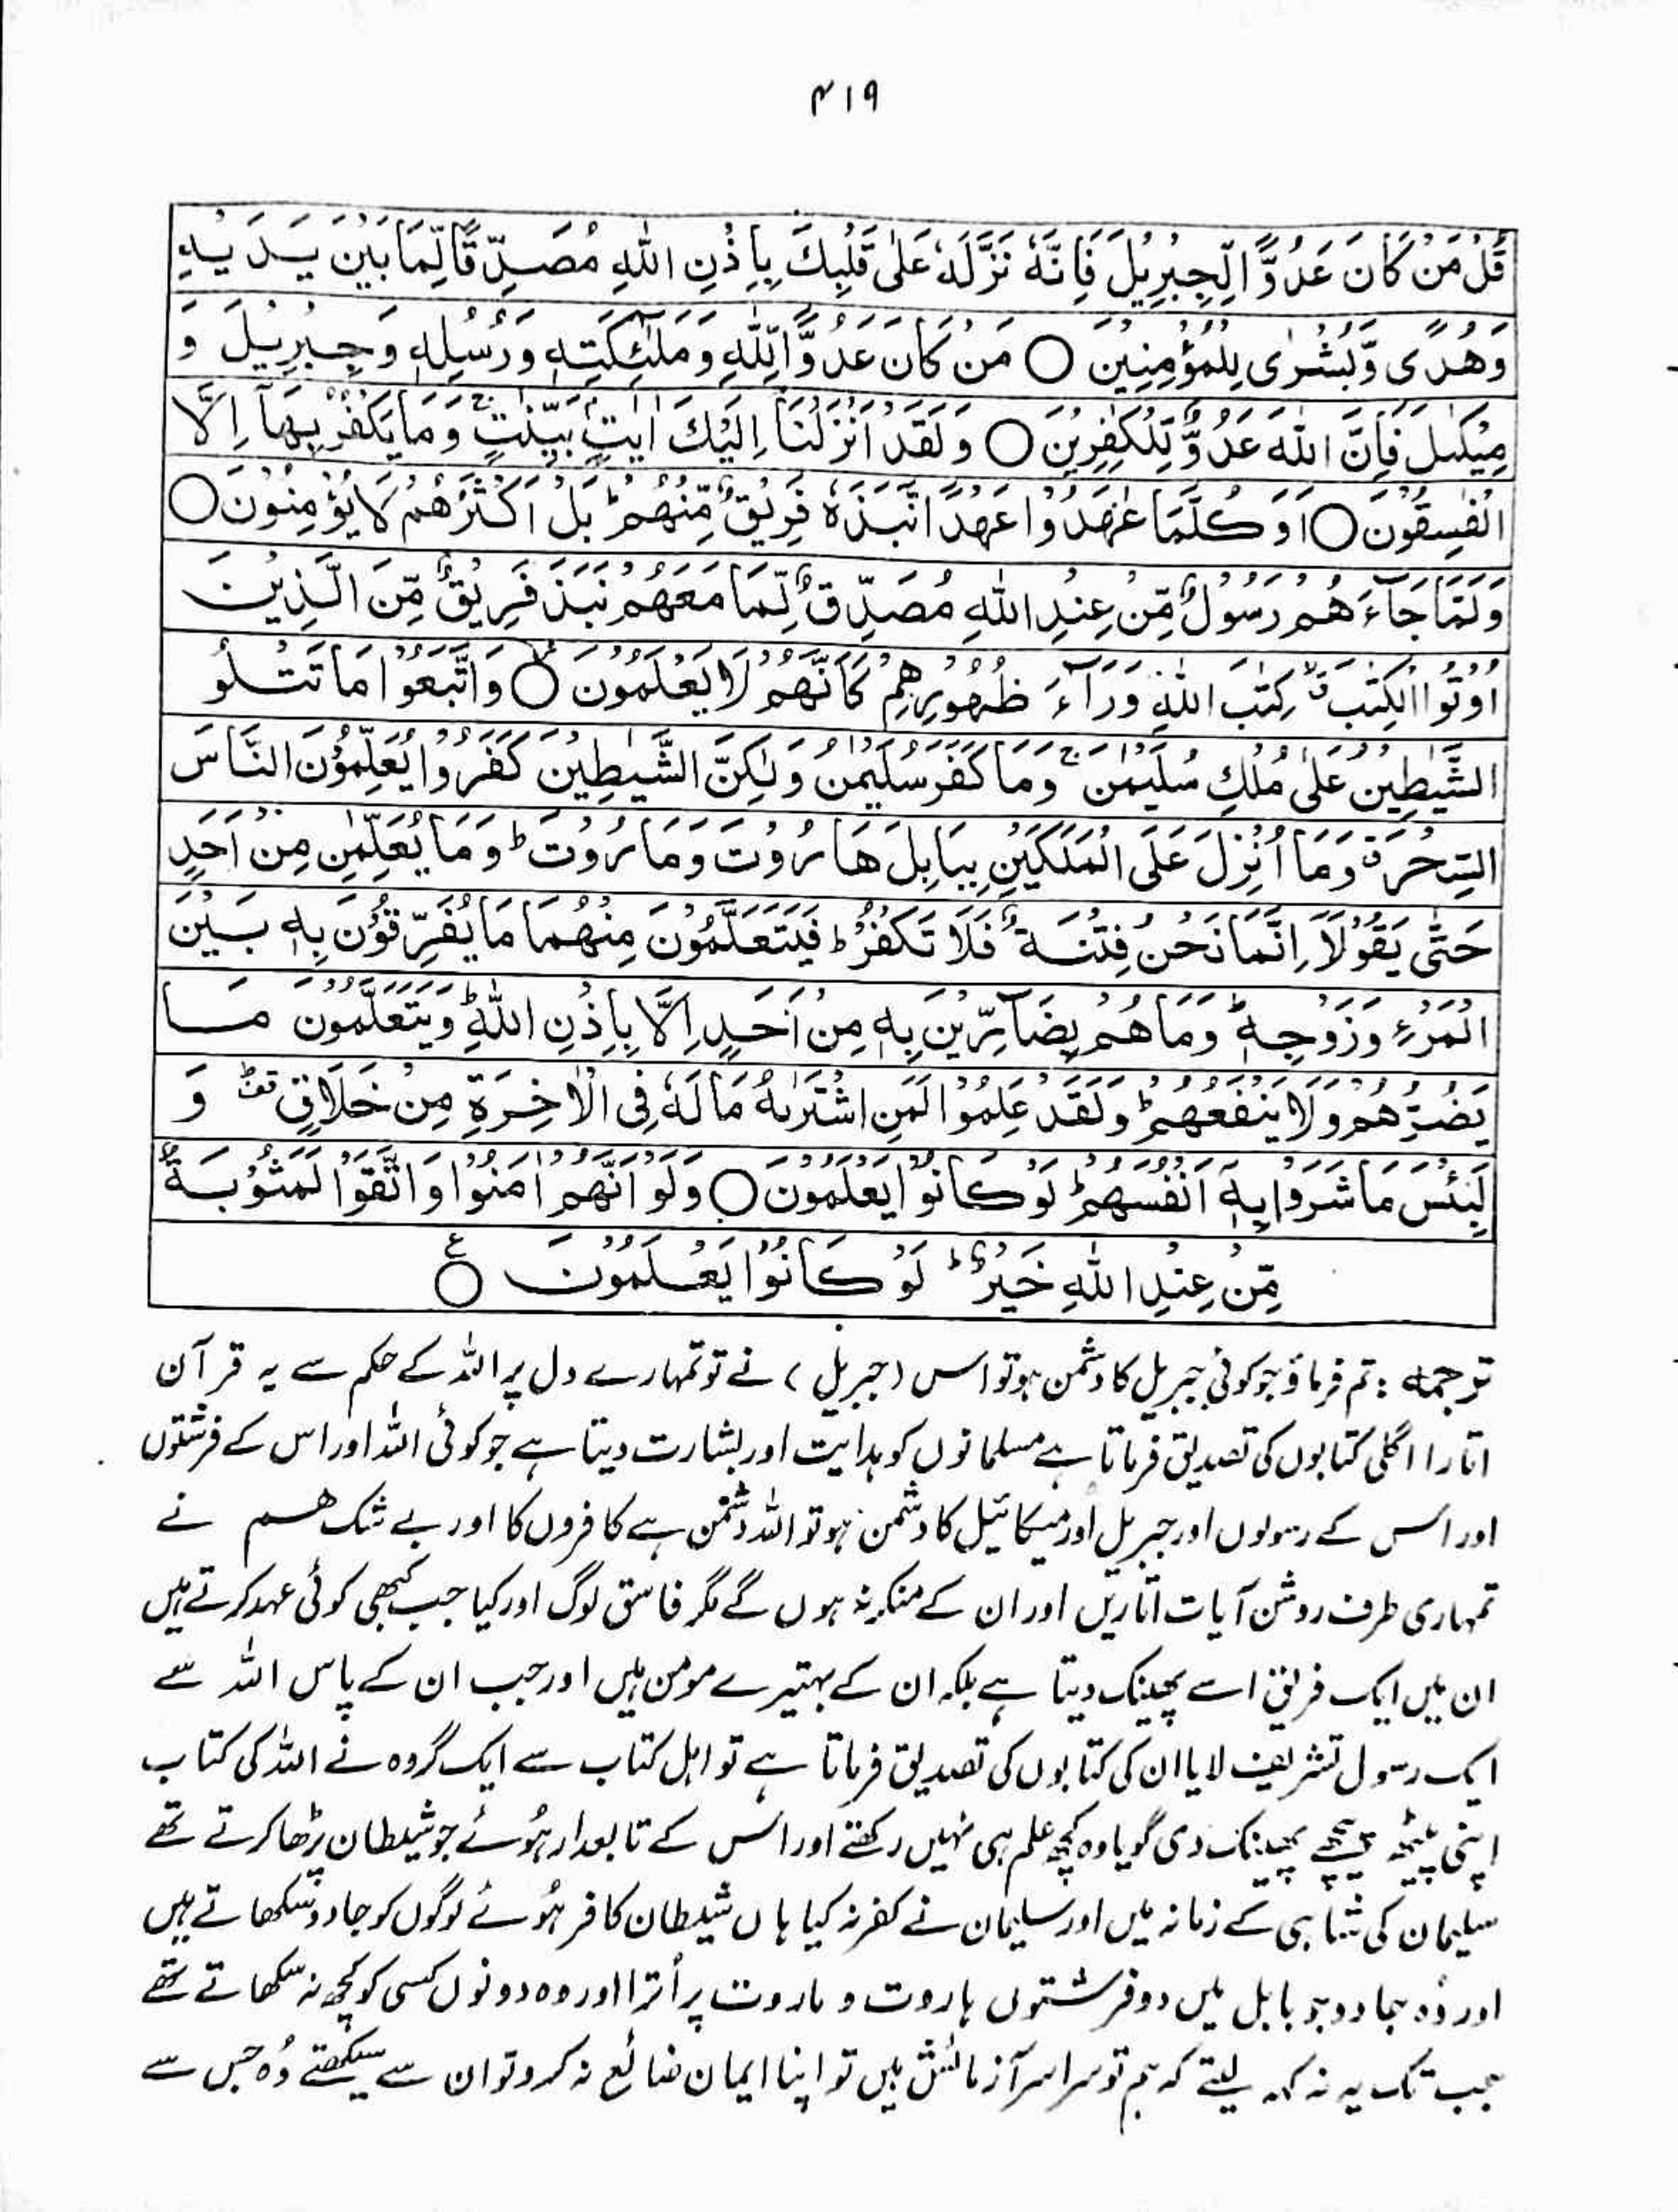 ۴۱۹
قُلْ مَنْ كَانَ عَدُوًّا لِّجِبْرِيْلَ فَاِنَّهٗ نَزَّلَهٗ عَلٰى قَلْبِكَ بِاِذْنِ اللّٰهِ مُصَدِّقًا لِّمَا بَيْنَ يَدَيْهِ
وَهُدًى وَّبُشْرٰى لِلْمُؤْمِنِيْنَ ○ مَنْ كَانَ عَدُوًّا لِّلّٰهِ وَمَلٰٓئِكَتِهٖ وَرُسُلِهٖ وَجِبْرِيْلَ وَ
مِيْكٰىلَ فَاِنَّ اللّٰهَ عَدُوٌّ لِّلْكٰفِرِيْنَ ○ وَلَقَدْ اَنْزَلْنَآ اِلَيْكَ اٰيٰتٍۭ بَيِّنٰتٍ ۚ وَمَا يَكْفُرُ بِهَآ اِلَّا
الْفٰسِقُوْنَ ○ اَوَكُلَّمَا عٰهَدُوْا عَهْدًا نَّبَذَهٗ فَرِيْقٌ مِّنْهُمْ ؕ بَلْ اَكْثَرُهُمْ لَا يُؤْمِنُوْنَ ○
وَلَمَّا جَآءَهُمْ رَسُوْلٌ مِّنْ عِنْدِ اللّٰهِ مُصَدِّقٌ لِّمَا مَعَهُمْ نَبَذَ فَرِيْقٌ مِّنَ الَّذِيْنَ
اُوْتُوا الْكِتٰبَ ۙ كِتٰبَ اللّٰهِ وَرَآءَ ظُهُوْرِهِمْ كَاَنَّهُمْ لَا يَعْلَمُوْنَ ○ وَاتَّبَعُوْا مَا تَتْلُوا
الشَّيٰطِيْنُ عَلٰى مُلْكِ سُلَيْمٰنَ ۚ وَمَا كَفَرَ سُلَيْمٰنُ وَلٰكِنَّ الشَّيٰطِيْنَ كَفَرُوْا يُعَلِّمُوْنَ النَّاسَ
السِّحْرَ ۗ وَمَا اُنْزِلَ عَلَى الْمَلَكَيْنِ بِبَابِلَ هَارُوْتَ وَمَارُوْتَ ؕ وَمَا يُعَلِّمٰنِ مِنْ اَحَدٍ
حَتّٰى يَقُوْلَآ اِنَّمَا نَحْنُ فِتْنَةٌ فَلَا تَكْفُرْ ؕ فَيَتَعَلَّمُوْنَ مِنْهُمَا مَا يُفَرِّقُوْنَ بِهٖ بَيْنَ
الْمَرْءِ وَزَوْجِهٖ ؕ وَمَا هُمْ بِضَآرِّيْنَ بِهٖ مِنْ اَحَدٍ اِلَّا بِاِذْنِ اللّٰهِ ؕ وَيَتَعَلَّمُوْنَ مَا
يَضُرُّهُمْ وَلَا يَنْفَعُهُمْ ؕ وَلَقَدْ عَلِمُوْا لَمَنِ اشْتَرٰىهُ مَا لَهٗ فِى الْاٰخِرَةِ مِنْ خَلَاقٍ ۟ وَ
لَبِئْسَ مَا شَرَوْا بِهٖٓ اَنْفُسَهُمْ ؕ لَوْ كَانُوْا يَعْلَمُوْنَ ○ وَلَوْ اَنَّهُمْ اٰمَنُوْا وَاتَّقَوْا لَمَثُوْبَةٌ
مِّنْ عِنْدِ اللّٰهِ خَيْرٌ ؕ لَوْ كَانُوْا يَعْلَمُوْنَ ○ ع
ترجمہ : تم فرماؤ جو کوئی جبریل کا دشمن ہو تو اس (جبریل) نے تو تمہارے دل پر اللہ کے حکم سے یہ قرآن
اتارا اگلی کتابوں کی تصدیق فرماتا ہے مسلمانوں کو ہدایت اور بشارت دیتا ہے جو کوئی اللہ اور اس کے فرشتوں
اور اس کے رسولوں اور جبریل اور میکائیل کا دشمن ہو تو اللہ دشمن ہے کافروں کا اور بے شک ہم نے
تمہاری طرف روشن آیات اتاریں اور ان کے منکر نہ ہوں گے مگر فاسق لوگ اور کیا جب کبھی کوئی عہد کرتے ہیں
ان میں ایک فریق اسے پھینک دیتا ہے بلکہ ان کے بہتیرے مومن ہیں اور جب ان کے پاس اللہ سے
ایک رسول تشریف لایا ان کی کتابوں کی تصدیق فرماتا ہے تو اہل کتاب سے ایک گروہ نے اللہ کی کتاب
اپنی پیٹھ پیچھے پھینک دی گویا وہ کچھ علم ہی نہیں رکھتے اور اس کے تابعدار ہُوئے جو شیطان پڑھا کرتے تھے
سلیمان کی شاہی کے زمانہ میں اور سلیمان نے کفر نہ کیا ہاں شیطان کافر ہُوئے لوگوں کو جادو سکھاتے ہیں
اور وُہ جادو جو بابل میں دو فرشتوں ہاروت و ماروت پر اُترا اور وہ دونوں کسی کو کچھ نہ سکھاتے تھے
جب تک یہ نہ کہہ لیتے کہ ہم تو سراسر آزمائش ہیں تو اپنا ایمان ضائع نہ کرو تو ان سے سیکھتے وُہ جس سے